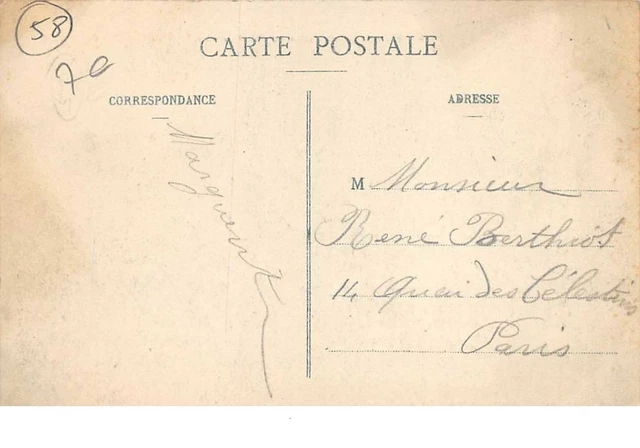 58
70
CARTE POSTALE
CORRESPONDANCE
ADRESSE
M Monsieur
René Berthiot
14 Quai des Célestins
Paris